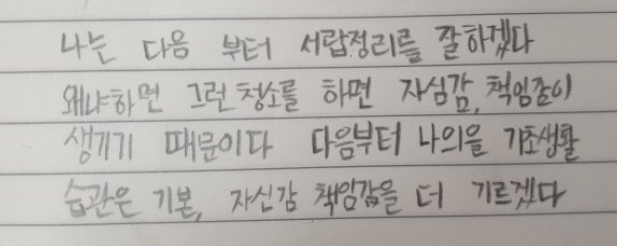 나는 다음 부터 서랍정리를 잘하겠다
왜냐하면 그런 청소를 하면 자심감, 책임감이
생기기 때문이다 다음부터 나의을 기초생활
습관은 기본, 자신감 책임감을 더 기르겠다